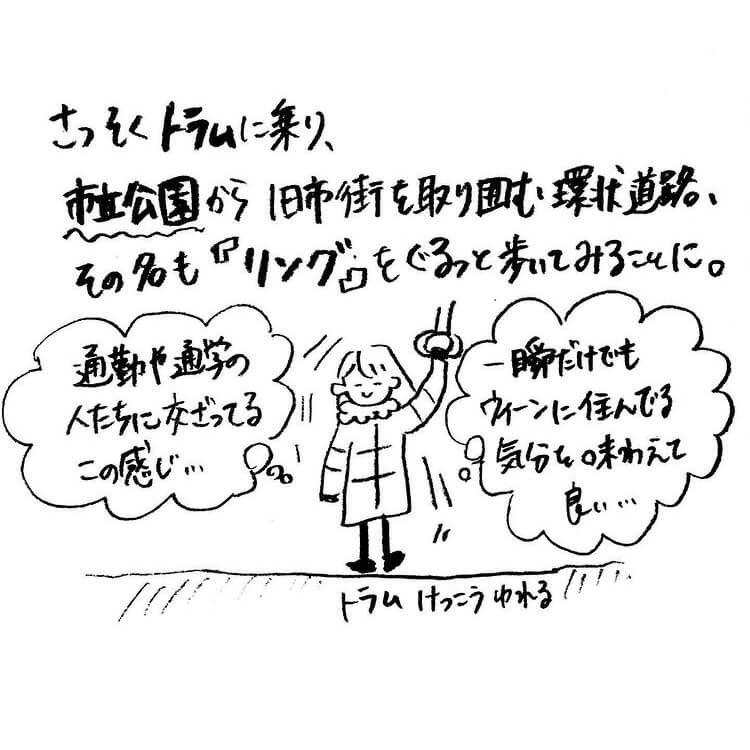 さっそくトラムに乗り、
市立公園から旧市街を取り囲む環状道路、
その名も『リング』をぐるっと歩いてみることに。
通勤や通学の
人たちに交ざってる
この感じ…
一瞬だけでも
ウィーンに住んでる
気分を味わえて
良い…
トラムけっこうゆれる